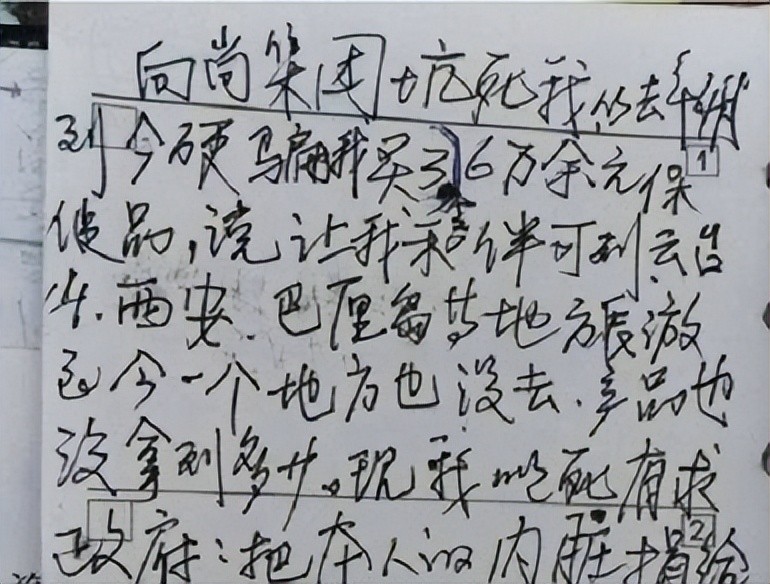 向尚集团坑死我,从去年8月
到今硬骗我买了6万余元保
健品,说让我和老伴可到云台
山.西安.巴厘岛等地方旅游
至今一个地方也没去.产品也
没拿到多少。现我以死有求
政府:把本人的内脏捐给
1
2